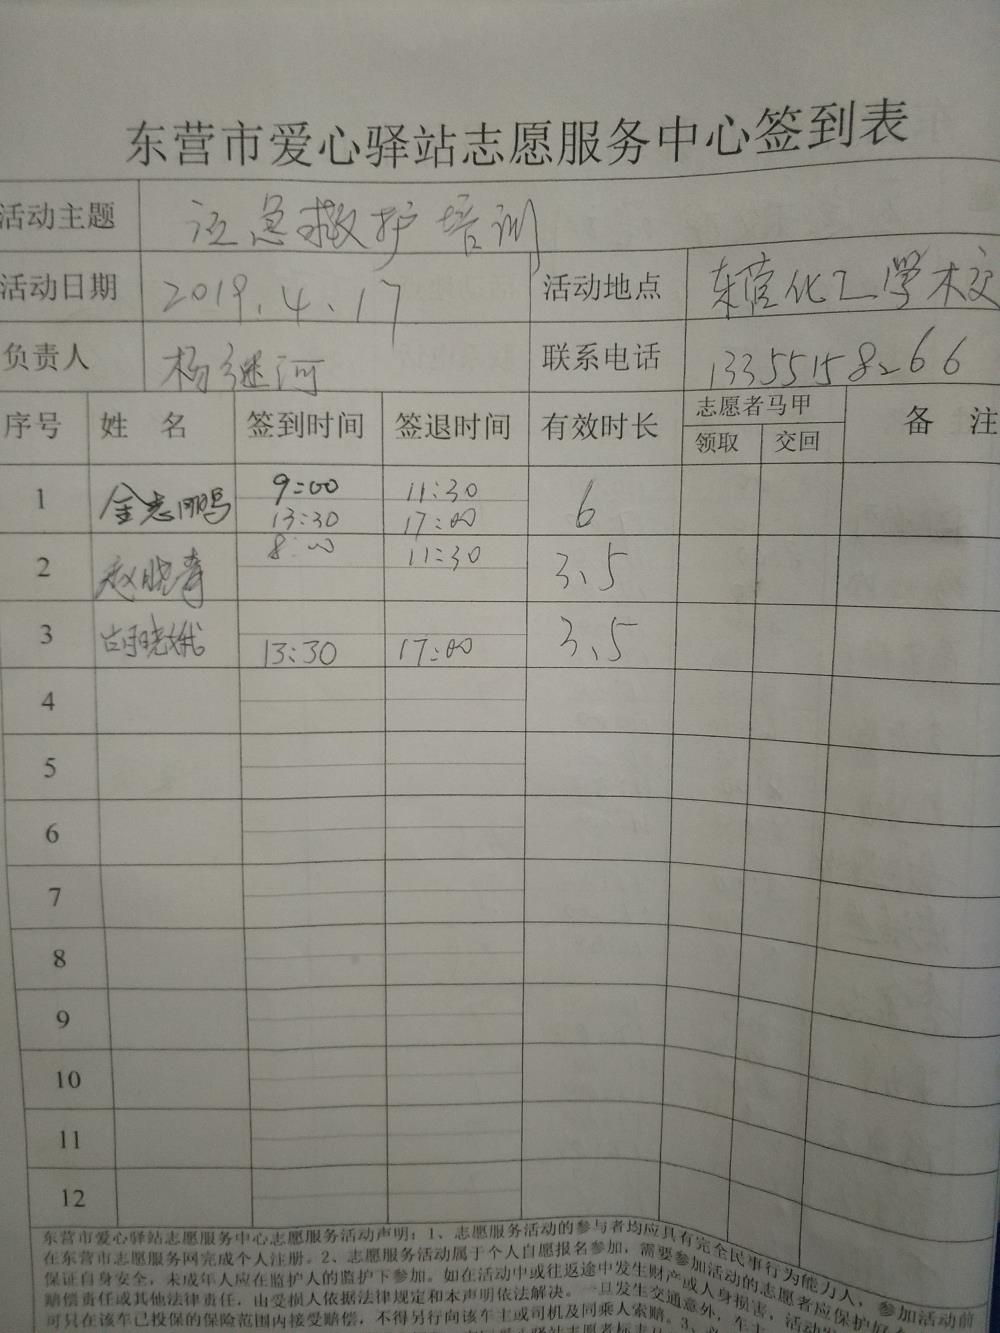 东营市爱心驿站志愿服务中心签到表
活动主题 应急救护培训
活动日期 2019.4.17 活动地点 东营化工学校
负责人 杨继河 联系电话 13355158266
序号 姓 名 签到时间 签退时间 有效时长 志愿者马甲 备 注
领取 交回
1 金志鹏 9:00 11:30 6
13:30 17:00
2 赵晓青 8:00 11:30 3、5
3 胡晓娥 13:30 17:00 3、5
4
5
6
7
8
9
10
11
12
东营市爱心驿站志愿服务中心志愿服务活动声明：1、志愿服务活动的参与者均应具有完全民事行为能力人，参加活动前
在东营市志愿服务网完成个人注册。2、志愿服务活动属于个人自愿报名参加，需要参加活动的志愿者应保护好
保证自身安全，未成年人应在监护人的监护下参加。如在活动中或往返途中发生财产或人身损害，活动
赔偿责任或其他法律责任，由受损人依据法律规定和本声明依法解决。一旦发生交通意外，车主
可只在该车已投保的保险范围内接受赔偿，不得另行向该车主或司机及同乘人索赔。3、